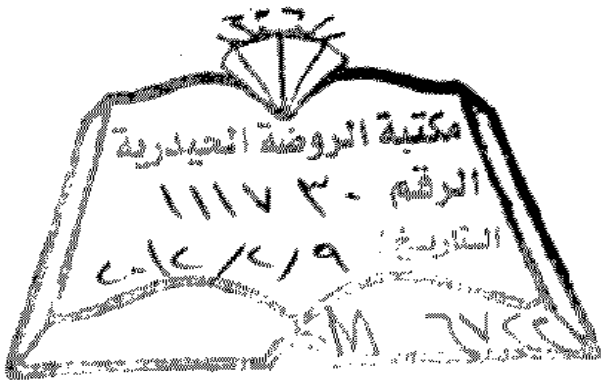 مكتبة الروضة الحيدرية
الرقم ١١١٧٣٠
التاريخ: ٢٠١٢/٢/٩